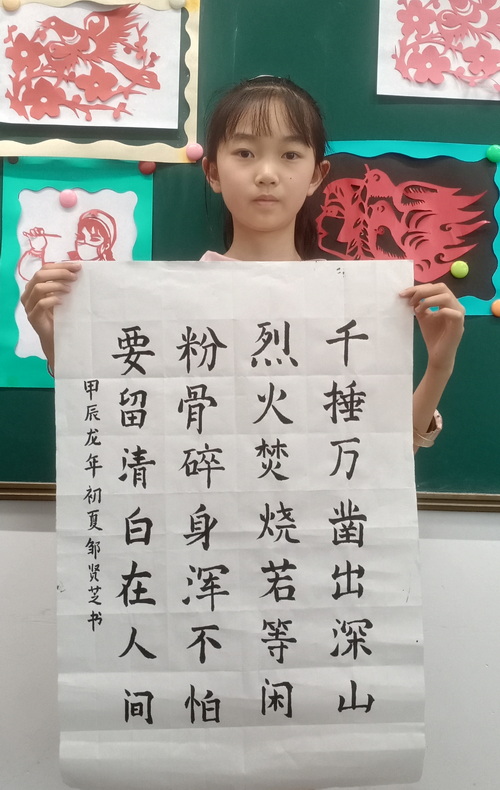 千捶万凿出深山
烈火焚烧若等闲
粉骨碎身浑不怕
要留清白在人间
甲辰龙年初夏邹贤芝书